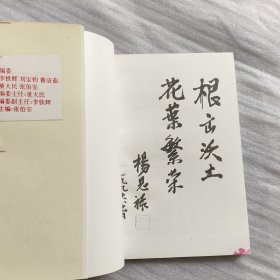 编委
李铁辉 刘宝钧 鲁洁茹
董大民 张伯安
编委主任:董大民
编委副主任:李铁辉
主编:张伯安
根在沃土
花葉繁榮
楊恩禄